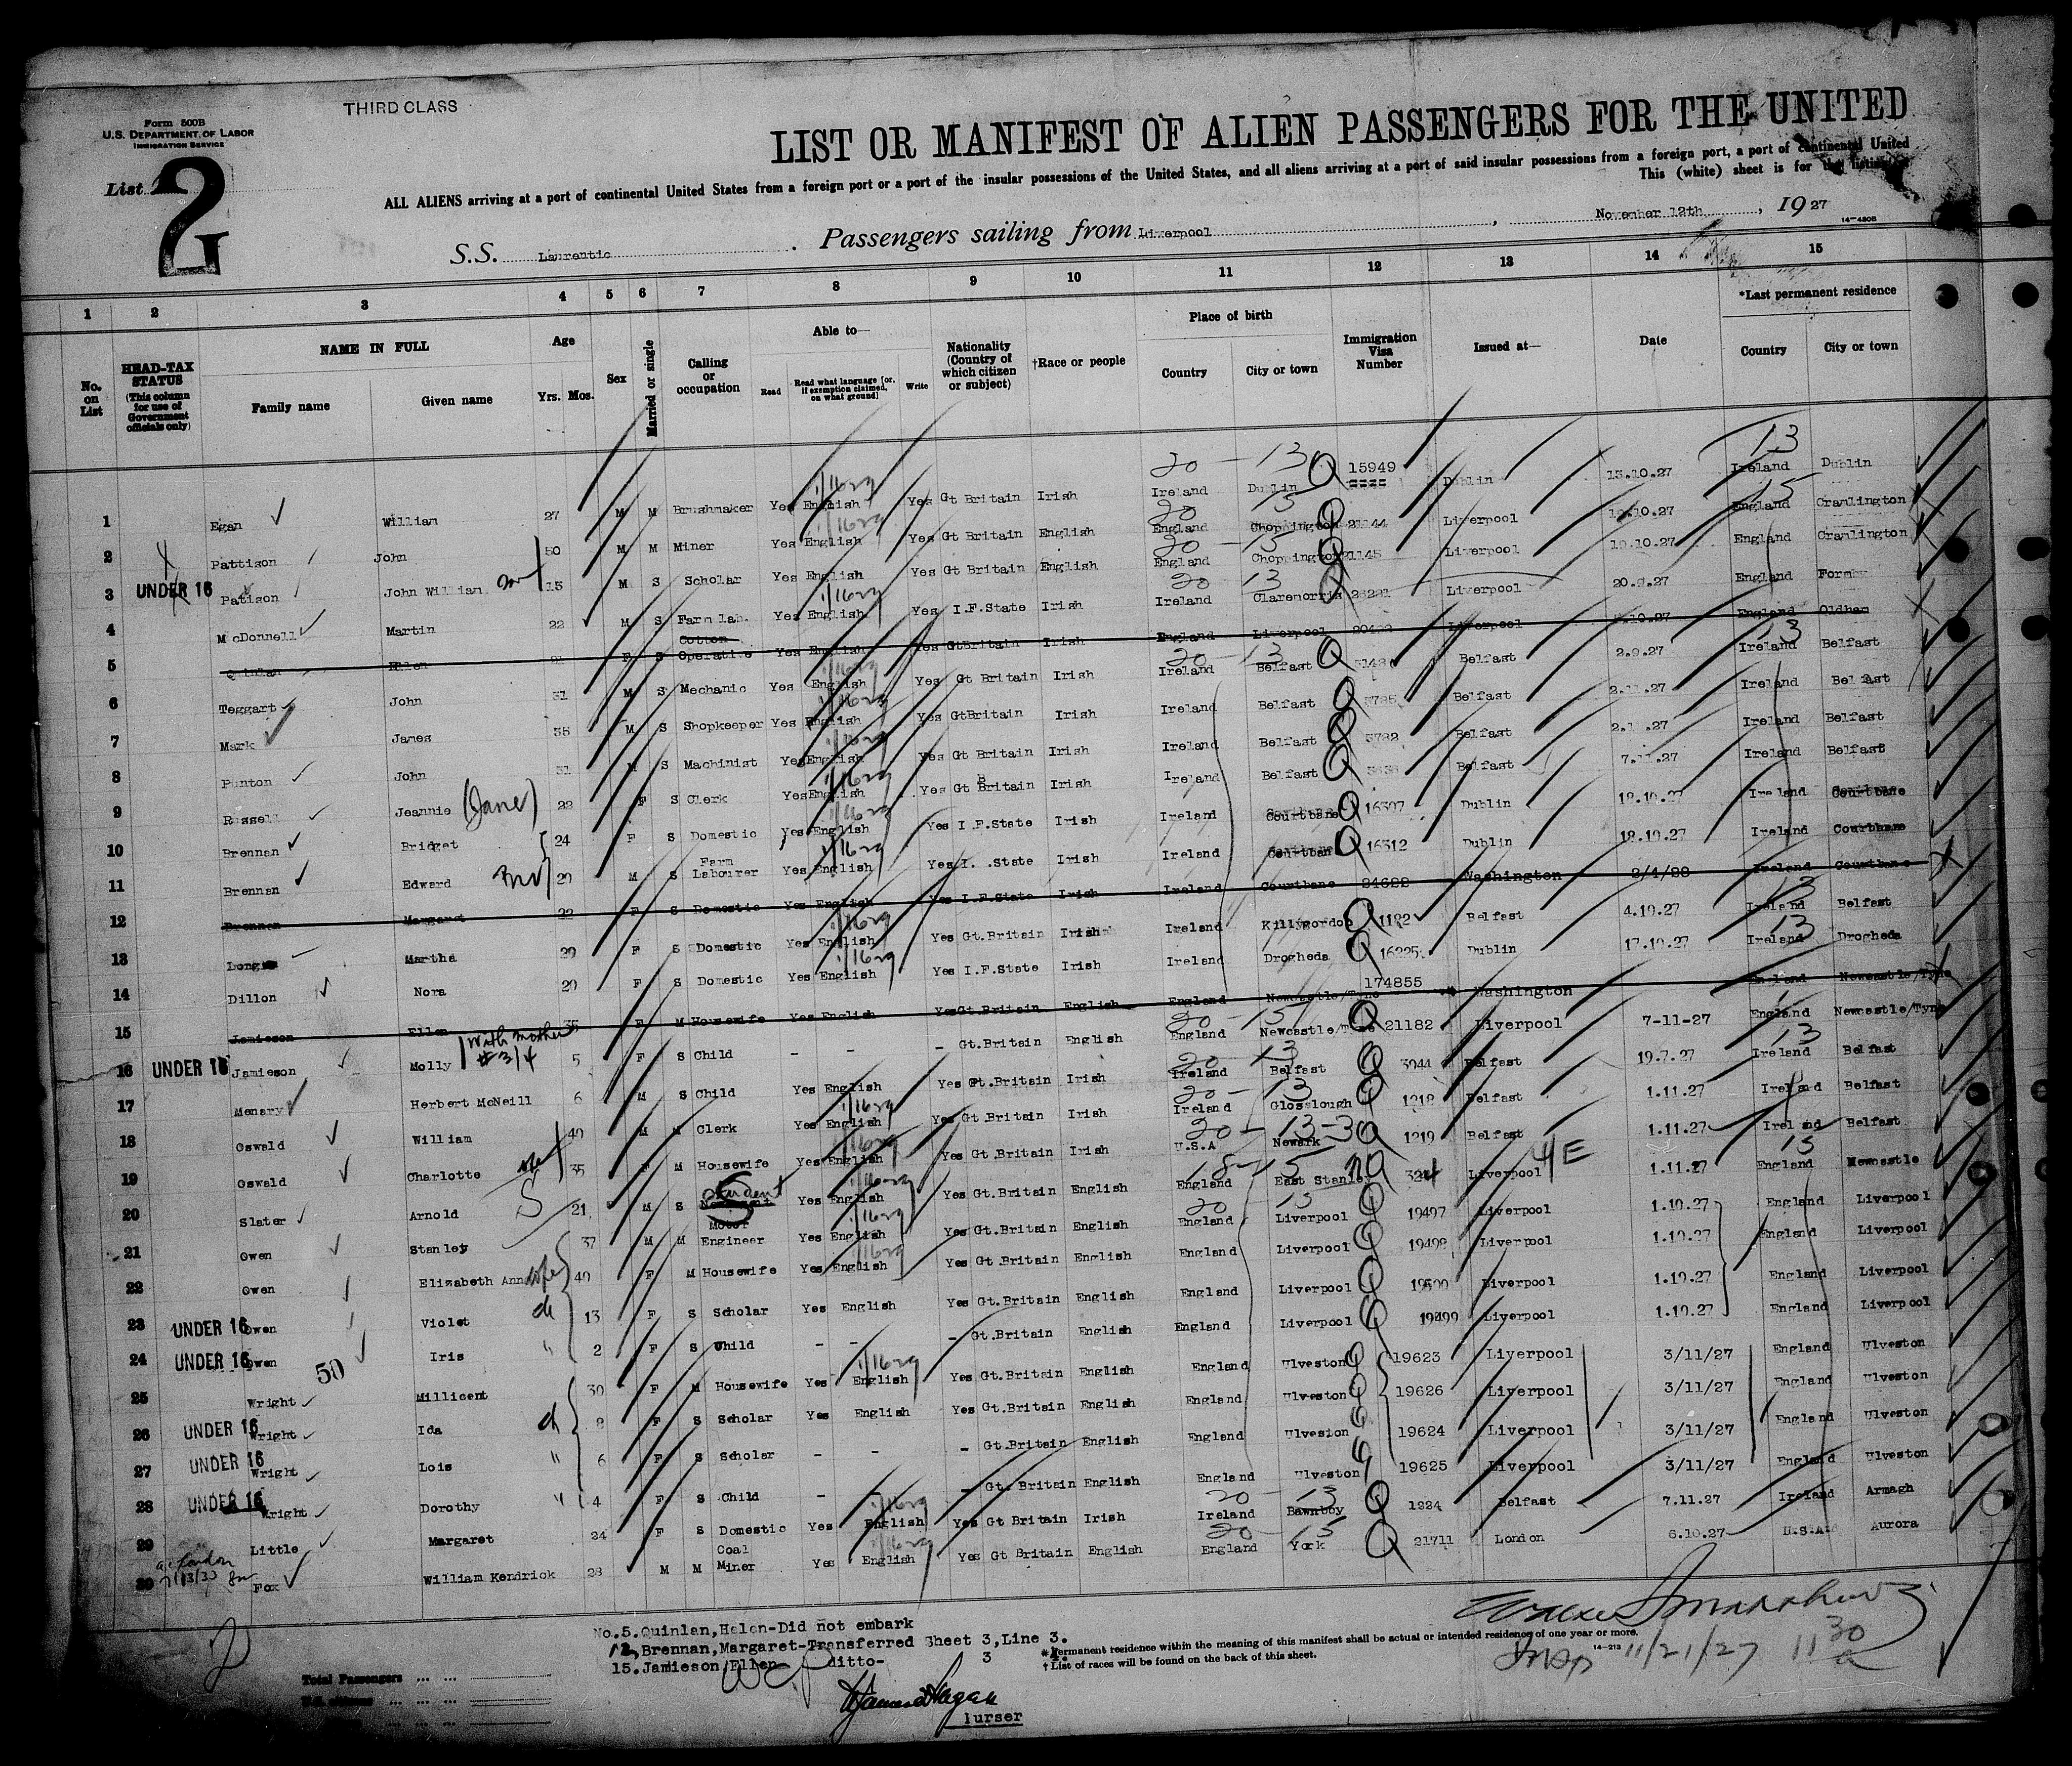 THIRD CLASS
Form 500B
U.S. DEPARTMENT OF LABOR
IMMIGRATION SERVICE
List 2
LIST OR MANIFEST OF ALIEN PASSENGERS FOR THE UNITED
ALL ALIENS arriving at a port of continental United States from a foreign port or a port of the insular possessions of the United States, and all aliens arriving at a port of said insular possessions from a foreign port, a port of continental United
This (white) sheet is for the listing
S.S. Laurentic Passengers sailing from Liverpool, November 12th, 1927
14-450B
1 2 3 4 5 6 7 8 9 10 11 12 13 14 15
No. on List
HEAD-TAX STATUS (This column for use of Government officials only)
NAME IN FULL
Family name Given name
Age Yrs. Mos.
Sex
Married or single
Calling or occupation
Able to—
Read Read what language [or, if exemption claimed, on what ground] Write
Nationality (Country of which citizen or subject)
†Race or people
Place of birth
Country City or town
Immigration Visa Number
Issued at—
Date
*Last permanent residence
Country City or town
1 Egan William 27 M M Brushmaker Yes English Yes Gt Britain Irish Ireland Dublin 15949 Dublin 13.10.27 Ireland Dublin
2 Pattison John 50 M M Miner Yes English Yes Gt Britain English England Choppington 21144 Liverpool 19.10.27 England Cramlington
3 UNDER 16 Patison John William son 15 M S Scholar Yes English Yes Gt Britain English England Choppington 21145 Liverpool 19.10.27 England Cramlington
4 McDonnell Martin 22 M S Farm lab. Yes English Yes I.F.State Irish Ireland Claremorris Liverpool 20.9.27 England Formby
5 Quinlan Helen F S Cotton Operative Yes English Yes GtBritain Irish England Liverpool Liverpool England Oldham
6 Teggart John 31 M S Mechanic Yes English Yes Gt Britain Irish Ireland Belfast Belfast 2.9.27 Ireland Belfast
7 Mark James M S Shopkeeper Yes English Yes GtBritain Irish Ireland Belfast 5785 Belfast 2.11.27 Ireland Belfast
8 Punton John 31 M S Machinist Yes English Yes Gt Britain Irish Ireland Belfast 5782 Belfast 2.11.27 Ireland Belfast
9 Russell Jeannie (Jane) 22 F S Clerk Yes English Yes Gt Britain Irish Ireland Belfast Belfast 7.11.27 Ireland Belfast
10 Brennan Bridget 24 F S Domestic Yes English Yes I.F.State Irish Ireland Courtbane 16507 Dublin 18.10.27 Ireland Courtbane
11 Brennan Edward 20 M S Farm Labourer Yes English Yes I. .State Irish Ireland Courtbane 16512 Dublin 18.10.27 Ireland Courtbane
12 Brennan Margaret 22 F S Domestic Yes English Yes I.F.State Irish Ireland Courtbane Washington Ireland Courtbane
13 Long Martha 20 F S Domestic Yes English Yes Gt.Britain Irish Ireland Killygordon 1182 Belfast 4.10.27 Ireland Belfast
14 Dillon Nora 20 F S Domestic Yes English Yes I.F.State Irish Ireland Drogheda 16225 Dublin 17.10.27 Ireland Drogheda
15 Jamieson Ellen 35 F M Housewife Yes English Yes Gt.Britain English England Newcastle/Tyne 174855 Washington England Newcastle/Tyne
16 UNDER 16 Jamieson Molly With mother #3/4 5 F S Child - - - Gt.Britain English England Newcastle/Tyne 21182 Liverpool 7-11-27 England Newcastle/Tyne
17 Menary Herbert McNeill 6 M S Child Yes English Yes Gt.Britain Irish Ireland Belfast 3944 Belfast 19.7.27 Ireland Belfast
18 Oswald William 40 M M Clerk Yes English Yes Gt.Britain Irish Ireland Glosslough 1218 Belfast 1.11.27 Ireland Belfast
19 Oswald Charlotte 35 F M Housewife Yes English Yes Gt.Britain Irish U.S.A Newark 1219 Belfast 1.11.27 Ireland Belfast
20 Slater Arnold 21 M S Student Yes English Yes Gt.Britain English England East Stanley 324 Liverpool 4/E 1.11.27 England Newcastle
21 Owen Stanley 37 M M Motor Engineer Yes English Yes Gt.Britain English England Liverpool 19497 Liverpool 1.10.27 England Liverpool
22 Owen Elizabeth Ann wife 40 F M Housewife Yes English Yes Gt.Britain English England Liverpool 19498 Liverpool 1.10.27 England Liverpool
23 UNDER 16 Owen Violet d 13 F S Scholar Yes English Yes Gt.Britain English England Liverpool 19500 Liverpool 1.10.27 England Liverpool
24 UNDER 16 Owen Iris " 2 F S Child - - - Gt.Britain English England Liverpool 19499 Liverpool 1.10.27 England Liverpool
50
25 Wright Millicent 30 F M Housewife Yes English Yes Gt.Britain English England Ulveston 19623 Liverpool 3/11/27 England Ulveston
26 UNDER 16 Wright Ida d 8 F S Scholar Yes English Yes Gt.Britain English England Ulveston 19626 Liverpool 3/11/27 England Ulveston
27 UNDER 16 Wright Lois " 6 F S Scholar - - - Gt.Britain English England Ulveston 19624 Liverpool 3/11/27 England Ulveston
28 UNDER 16 Wright Dorothy " 4 F S Child - - - Gt.Britain English England Ulveston 19625 Liverpool 3/11/27 England Ulveston
29 Little Margaret 24 F S Domestic Yes English Yes Gt Britain Irish Ireland Bawnboy 1224 Belfast 7.11.27 Ireland Armagh
30 Fox William Kendrick 28 M M Coal Miner Yes English Yes Gt Britain English England York 21711 London 6.10.27 U.S.A. Aurora
No.5.Quinlan,Helen-Did not embark
12,Brennan,Margaret-Transferred Sheet 3,Line 3.
15.Jamieson,Ellen- ditto- 3 4.
* Permanent residence within the meaning of this manifest shall be actual or intended residence of one year or more.
† List of races will be found on the back of this sheet.
14-213
Insp 11/21/27 11 30 a
Total Passengers
U.S. citizens
Purser